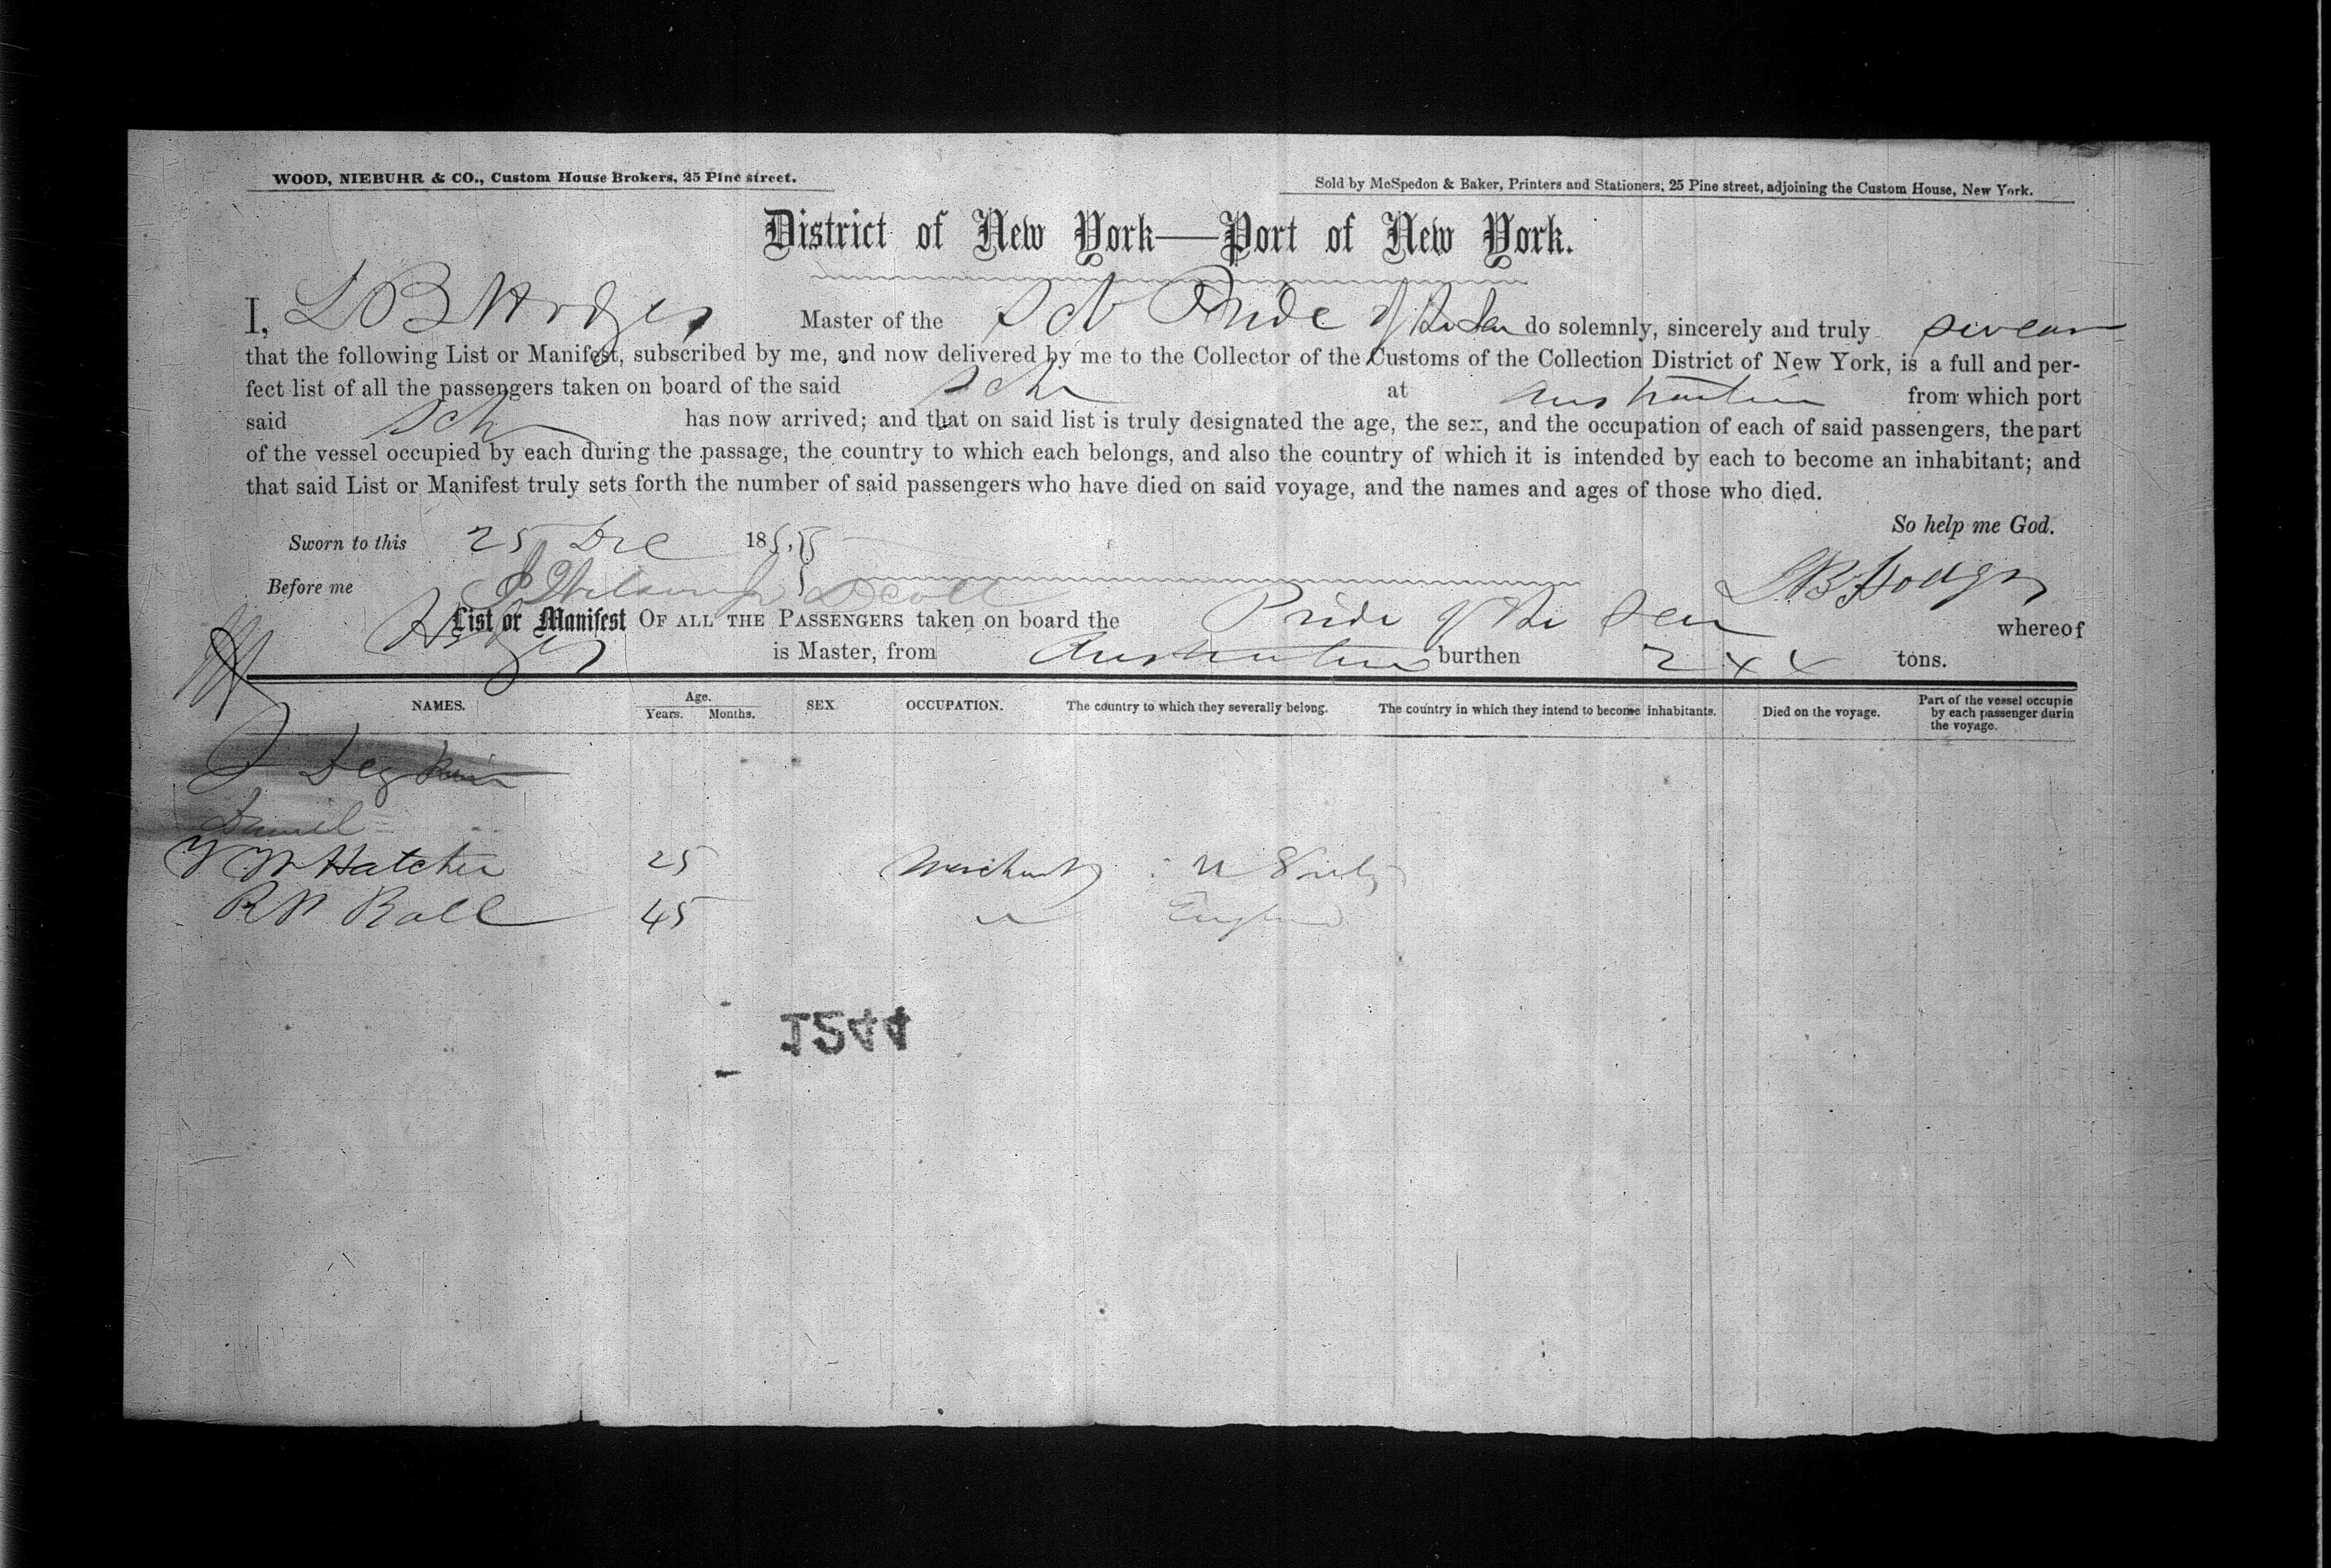 WOOD, NIEBUHR & CO., Custom House Brokers, 25 Pine street.
Sold by McSpedon & Baker, Printers and Stationers, 25 Pine street, adjoining the Custom House, New York.
District of New York—Port of New York.
I, L B Hodges Master of the Sch Pride of the Sea do solemnly, sincerely and truly swear
that the following List or Manifest, subscribed by me, and now delivered by me to the Collector of the Customs of the Collection District of New York, is a full and per-
fect list of all the passengers taken on board of the said Sch at from which port
said Sch has now arrived; and that on said list is truly designated the age, the sex, and the occupation of each of said passengers, the part
of the vessel occupied by each during the passage, the country to which each belongs, and also the country of which it is intended by each to become an inhabitant; and
that said List or Manifest truly sets forth the number of said passengers who have died on said voyage, and the names and ages of those who died.
So help me God.
Sworn to this 25 Dec 1855
Before me L B Hodges
List or Manifest OF ALL THE PASSENGERS taken on board the Pride of the Sea whereof
Hodges is Master, from burthen 244 tons.
NAMES. Age. Years. Months. SEX. OCCUPATION. The country to which they severally belong. The country in which they intend to become inhabitants. Died on the voyage. Part of the vessel occupie by each passenger durin the voyage.
Daniel
W Hatcher 25 Merchant
R W Ball 45 " England
1544